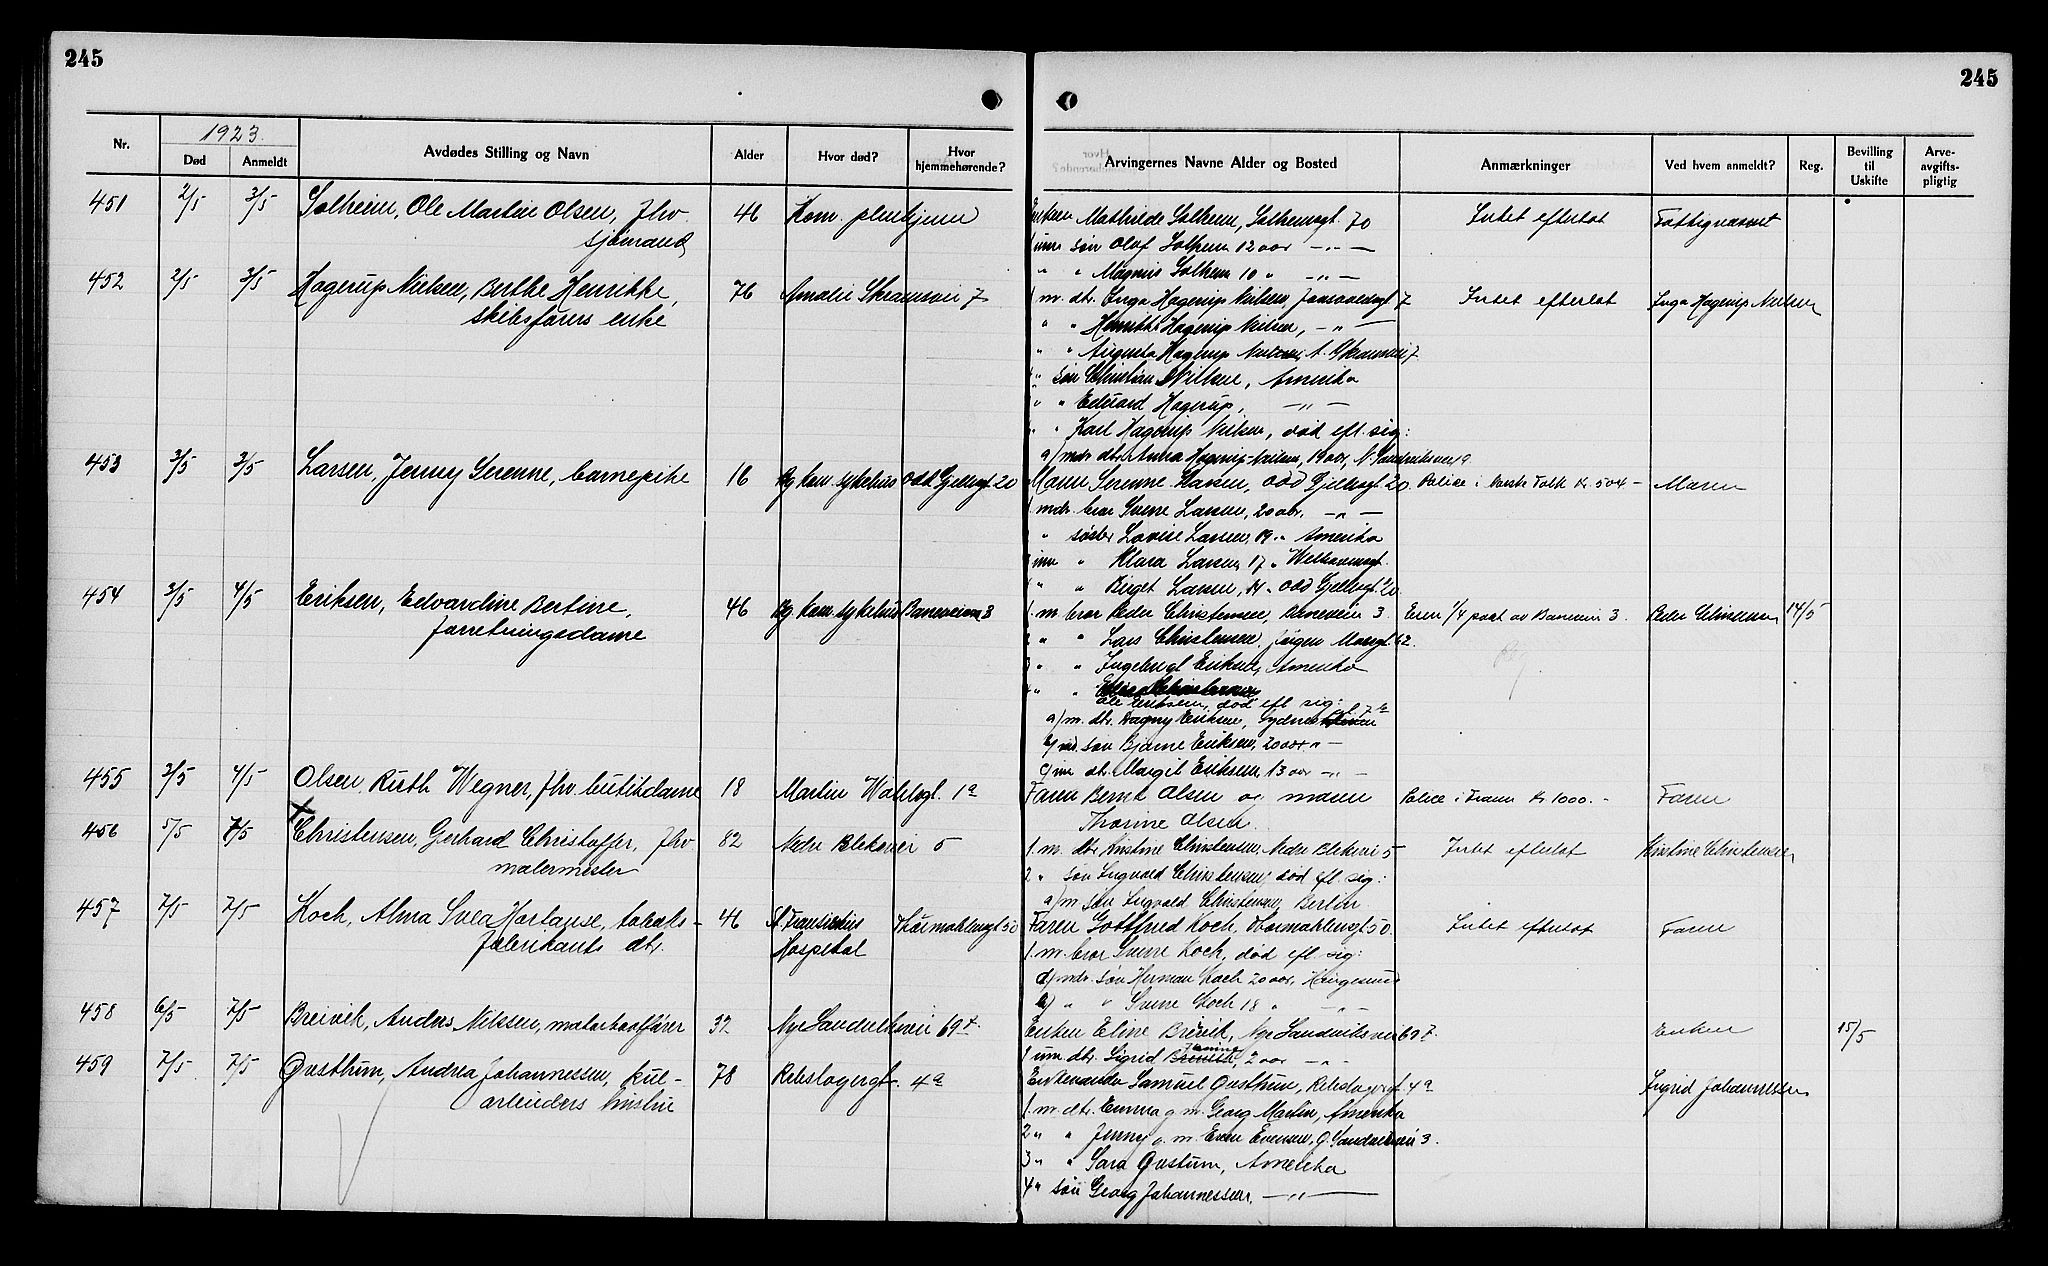 245
245
1923.
Nr. Død Anmeldt Avdødes Stilling og Navn Alder Hvor død? Hvor hjemmehørende? Arvingernes Navne Alder og Bosted Anmærkninger Ved hvem anmeldt? Reg. Bevilling til Uskifte Arve-avgifts-pligtig
451 2/5 3/5 Solheim, Ole Martin Olsen, fhv 46 Kom. pleiehjem Enken Mathilde Solheim, Solheimsgt. 70 Intet efterlat Fattigvæsenet
sjömand, 1 um søn Olaf Solheim 12 aar — „ —
„ „ Magnus Solheim 10 „ — „ —
452 2/5 3/5 Hagerup Nielsen, Birthe Henrikke, 76 Amalie Skramsvei 7 1 m. dtr. Inga Hagerup Nielsen, 7 Intet efterlat Inga Hagerup Nielsen
skibsførers enke „ „ Henritte Hagerup Nielsen, — „ —
„ „ Augusta Hagerup Nielsen, A. Skramsvei 7
„ søn Christian Nielsen, Amerika
„ „ Edvard Hagerup, — „ —
„ „ Karl Hagerup Nielsen, død eft. sig:
a) mdr dtr Anna Hagerup-Nielsen, 19 aar,
453 3/5 3/5 Larsen, Jenny Serenne, barnepike 16 Bg kom. sykehus Odd Gjellsgt. 20 Moren Serenne Larsen, Odd Gjellsgt. 20. Police i Norske Folk Kr. 504 — Moren
1 mdr. bror Sverre Larsen, 20 aar. — „ —
„ søster Lovise Larsen, 19 „ Amerika
um „ Klara Larsen, 17 „ Welhavensgt.
„ „ Birgit Larsen, 14 „ Odd Gjellsgt. 20.
454 3/5 4/5 Eriksen, Edvardine Bertine, 46 Bg kom. sykehus Baneveien 3 1. m. bror Peder Christensen, Baneveien 3. Eier 1/4 part av Baneveien 3. Peder Christensen 14/5
forretningsdame 2 „ „ Lars Christensen, Jørgen Moesgt. 62.
3 „ „ Ingebrigt Eriksen, Amerika
4 „ „
Ole Eriksen, død eft sig:
a) m. dtr. Dagny Eriksen,
b) md. søn Bjarne Eriksen, 20 aar „ —
c) um dt. Margit Eriksen, 13 aar — „ —
455 3/5 4/5 Olsen, Ruth Wegner, fhv. butikdame 18 Martin Wahlsgt. 1a Faren Bernt Olsen og moren Police i Fram Kr. 1000. — Faren
Thorine Olsen.
456 5/5 7/5 Christensen, Gerhard Christoffer, fhv 82 Nedre Blekevei 5 1. m. dtr. Kristine Christensen, Nedre Blekevei 5 Intet efterlat Kristine Christensen
malermester 2 „ søn Ingvald Christensen, død eft. sig:
a) m søn Ingvald Christensen, Berlin.
457 7/5 7/5 Koch, Alma Svea Hortanse, tobaks- 46 St. Franciskus Thormøhlensgt 50 Faren Gottfred Koch, Thormøhlensgt 50. Intet efterlat Faren
fabrikants dtr. Hospital 1. m. bror Sverre Koch, død eft. sig:
a) mdr. søn Herman Koch 20 aar, Haugesund
b) „ „ Sverre Koch 18 „
458 6/5 7/5 Breivik, Anders Nilssen, motorbaatfører 32 Nye Sandviksvei 69 Enken Eline Breivik, Nye Sandviksvei 69 Enken 15/5
1 um. dtr. Sigrid 2 aar — „ —
459 7/5 7/5 Qvasthum, Andrea Johannessen, kul- 78 Rebslagergt. 4a Enkemanden Samuel Qvasthum, Rebslagergt. 4a Sigrid Johannessen
arbeiders hustru 1. m. dtr. Emma g. m. Georg Martin, Amerika
2 „ „ Jenny g. m. Even Evensen, 3.
3 „ „ Sara Qvastum, Amerika
4 „ søn Georg Johannessen, — „ —